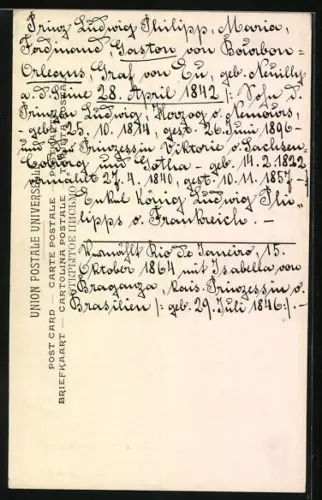 Prinz Ludwig Philipp, Maria,
Ferdinand, Gaston von Bourbon-
Orleans, Graf von Eu, geb. Neuilly
a. d. Seine 28. April 1842 /: Sohn d.
Prinzen Ludwig, Herzog v. Nemours,
- geb. 25. 10. 1814, gest. 26. Juni 1896 -
und der Prinzessin Viktorie v. Sachsen-
Coburg und Gotha - geb. 14. 2. 1822,
vermählt 27. 4. 1840, gest. 10. 11. 1857 - /
Enkel König Ludwig Phi-
lipps v. Frankreich. -
Vermählt Rio de Janeiro, 15.
Oktober 1864 mit Isabella von
Braganza, kais. Prinzessin v.
Brasilien /: geb. 29. Juli 1846 :/. -
UNION POSTALE UNIVERSELLE
POST CARD — CARTE POSTALE
BRIEFKAART — CARTOLINA POSTALE
ОТКРЫТОЕ ПИСЬМО